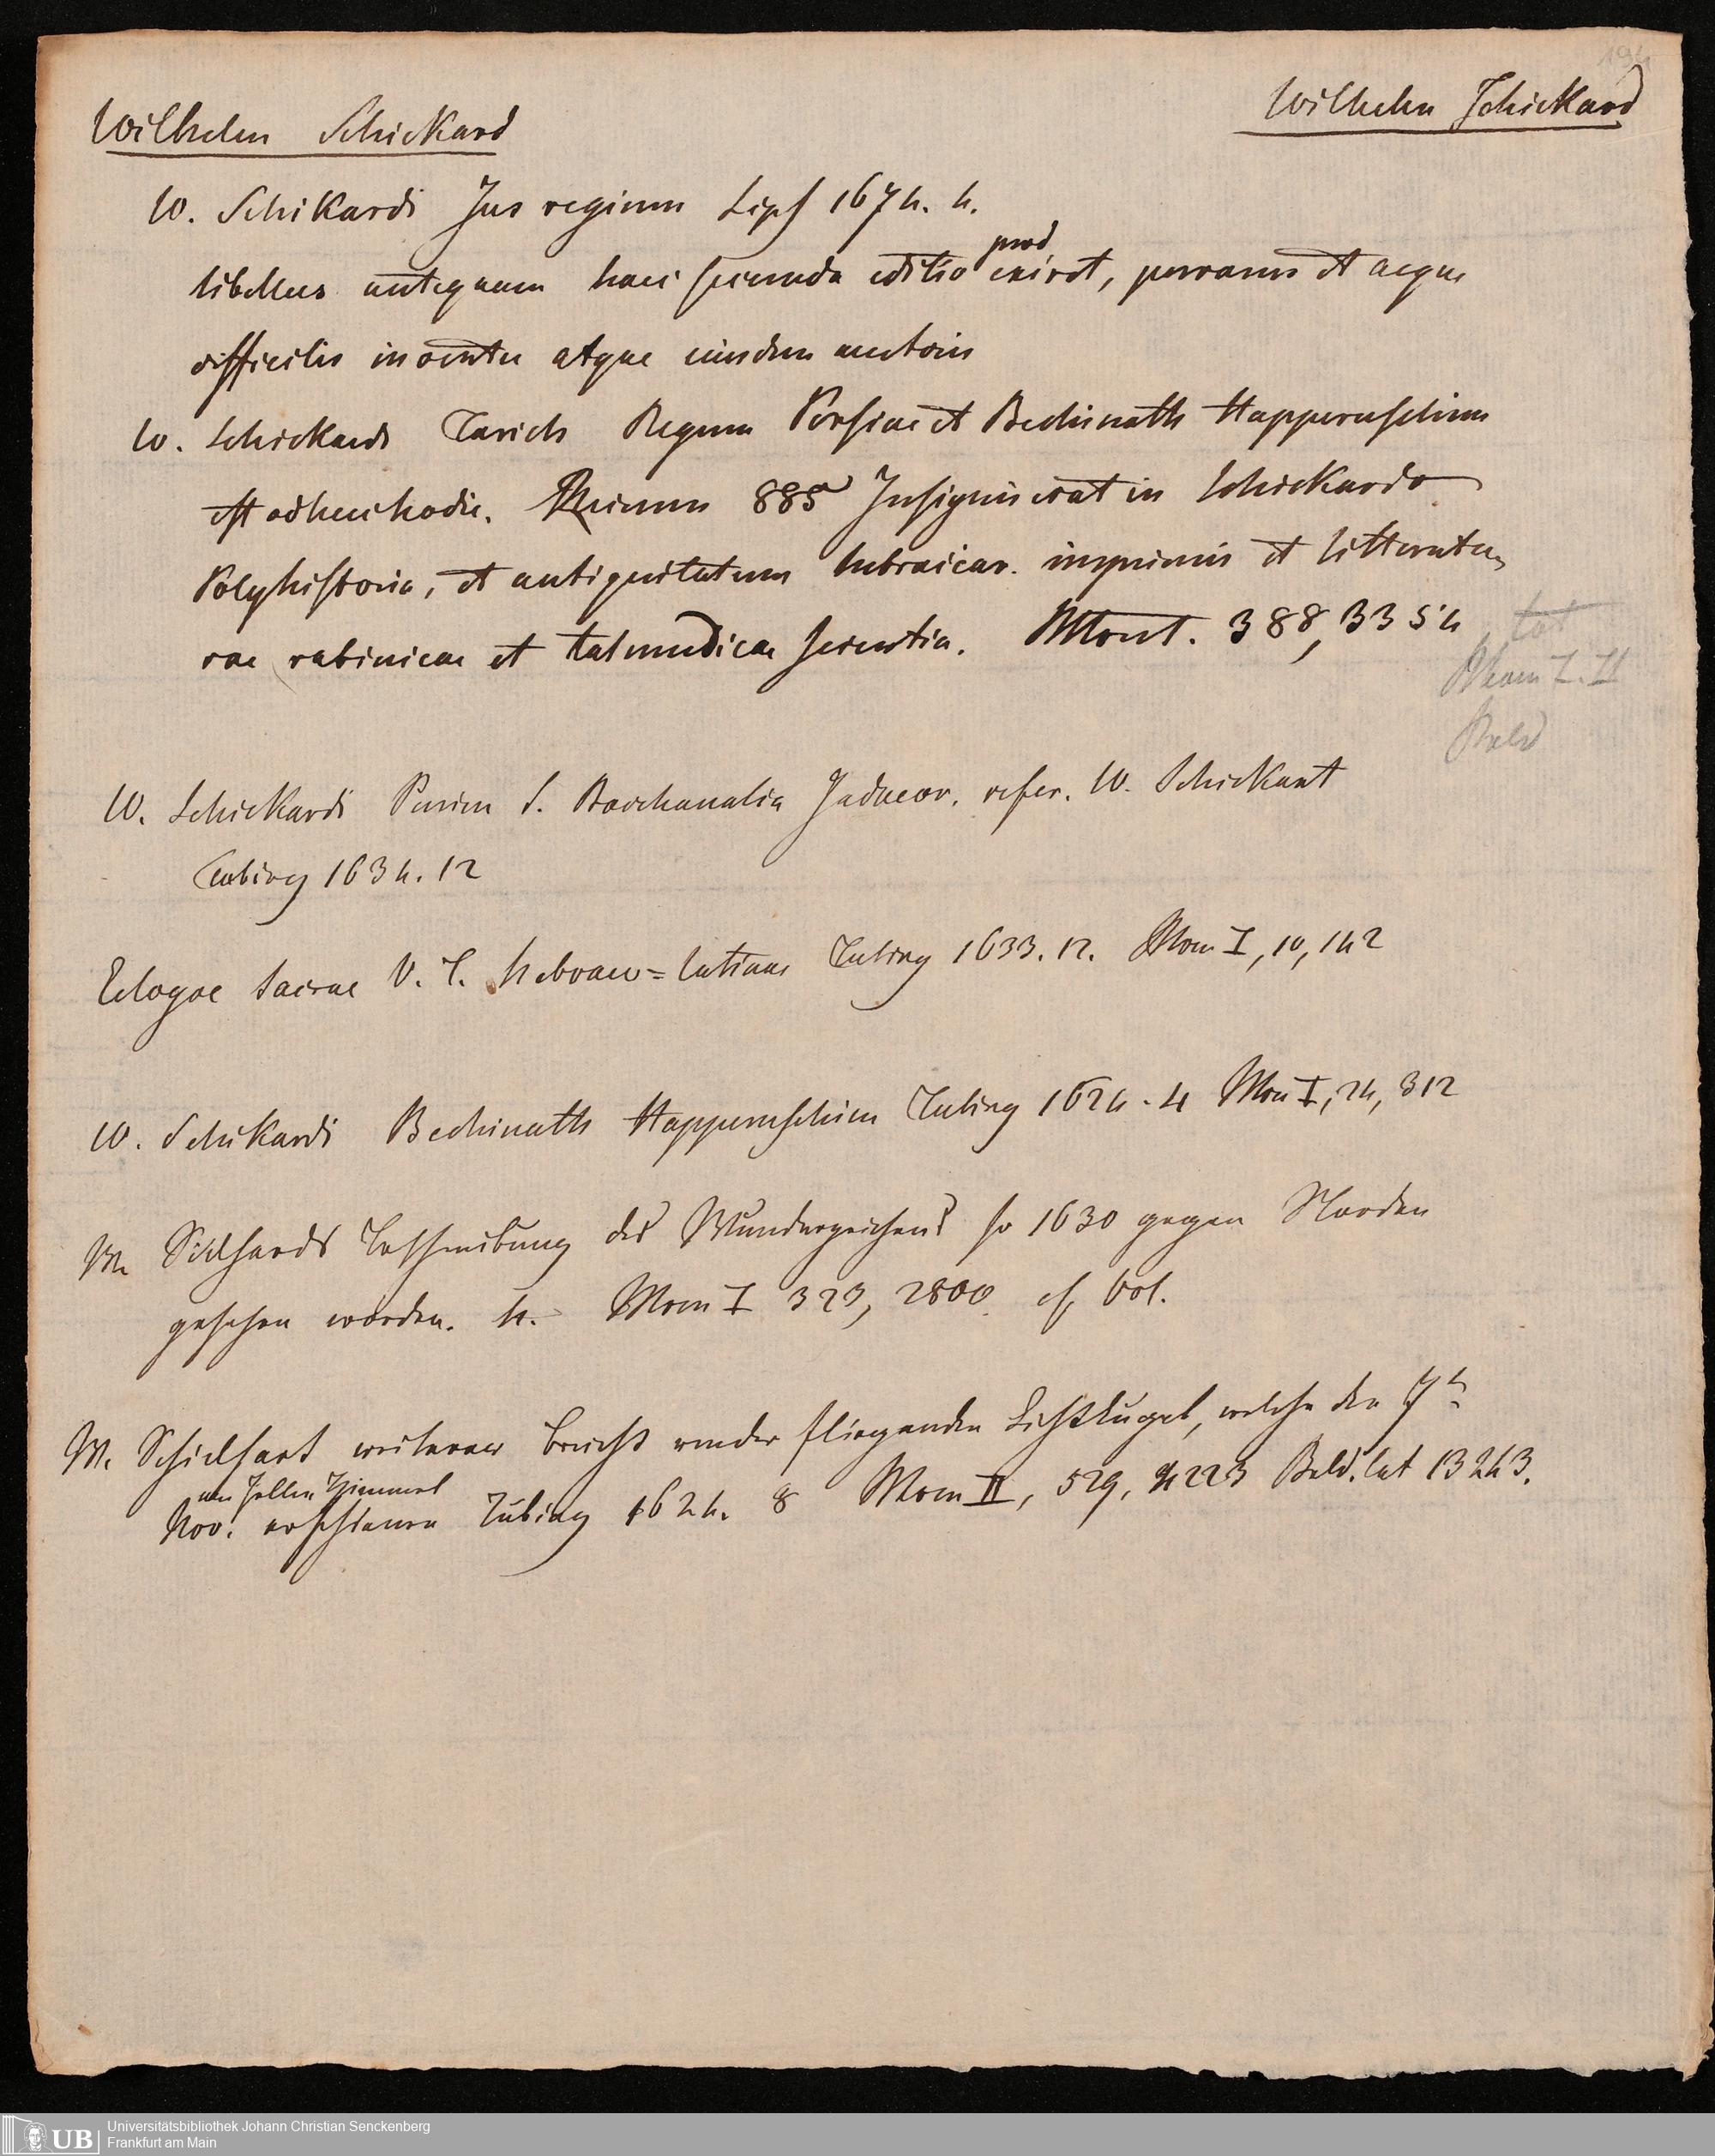 194
Wilhelm Schickard
Wilhelm Schickard
W. Schikardi Jus regium Lips 1674. 4.
libellus antequam haec secunda editio prod exiret, perrarus et aeque
difficilis inventu atque eiusdem auctoris
W. Schickardi Tarich Regum Persiae et Bechinath Happeruschim
est adhuc hodie. 885 Insignis erat in Schickardo
Polyhistoria, et antiquitatum hebraicar. imprimis et litteratu
rae rabinicae et talmudicae scientia. 388, 3354
Mom I. II
Bald
W. Schickardi Purim s. Bacchanalia Judaeor. refer. W. Schickart
Tubing 1634. 12
Eclogae sacrae V. T. hebraeo=latinae Tubing 1633. 12. Mom I, 10, 142
W. Schikardi Bechinath Happeruschim Tubing 1624. 4 Mom I, 24, 312
W. Schickards Beschreibung des Wunderzeichens so 1630 gegen Norden
gesehen worden. 4. Mom I 323, 2800 cf Vol.
W. Schickart weiterer Bericht von der fliegenden Lichtkugel, welche den 7t
am hellen Himmel
Nov. erschienen Tübing 1624. 8 Mom II, 529, 4223 Bald. lat 13243.
UB Universitätsbibliothek Johann Christian Senckenberg
Frankfurt am Main